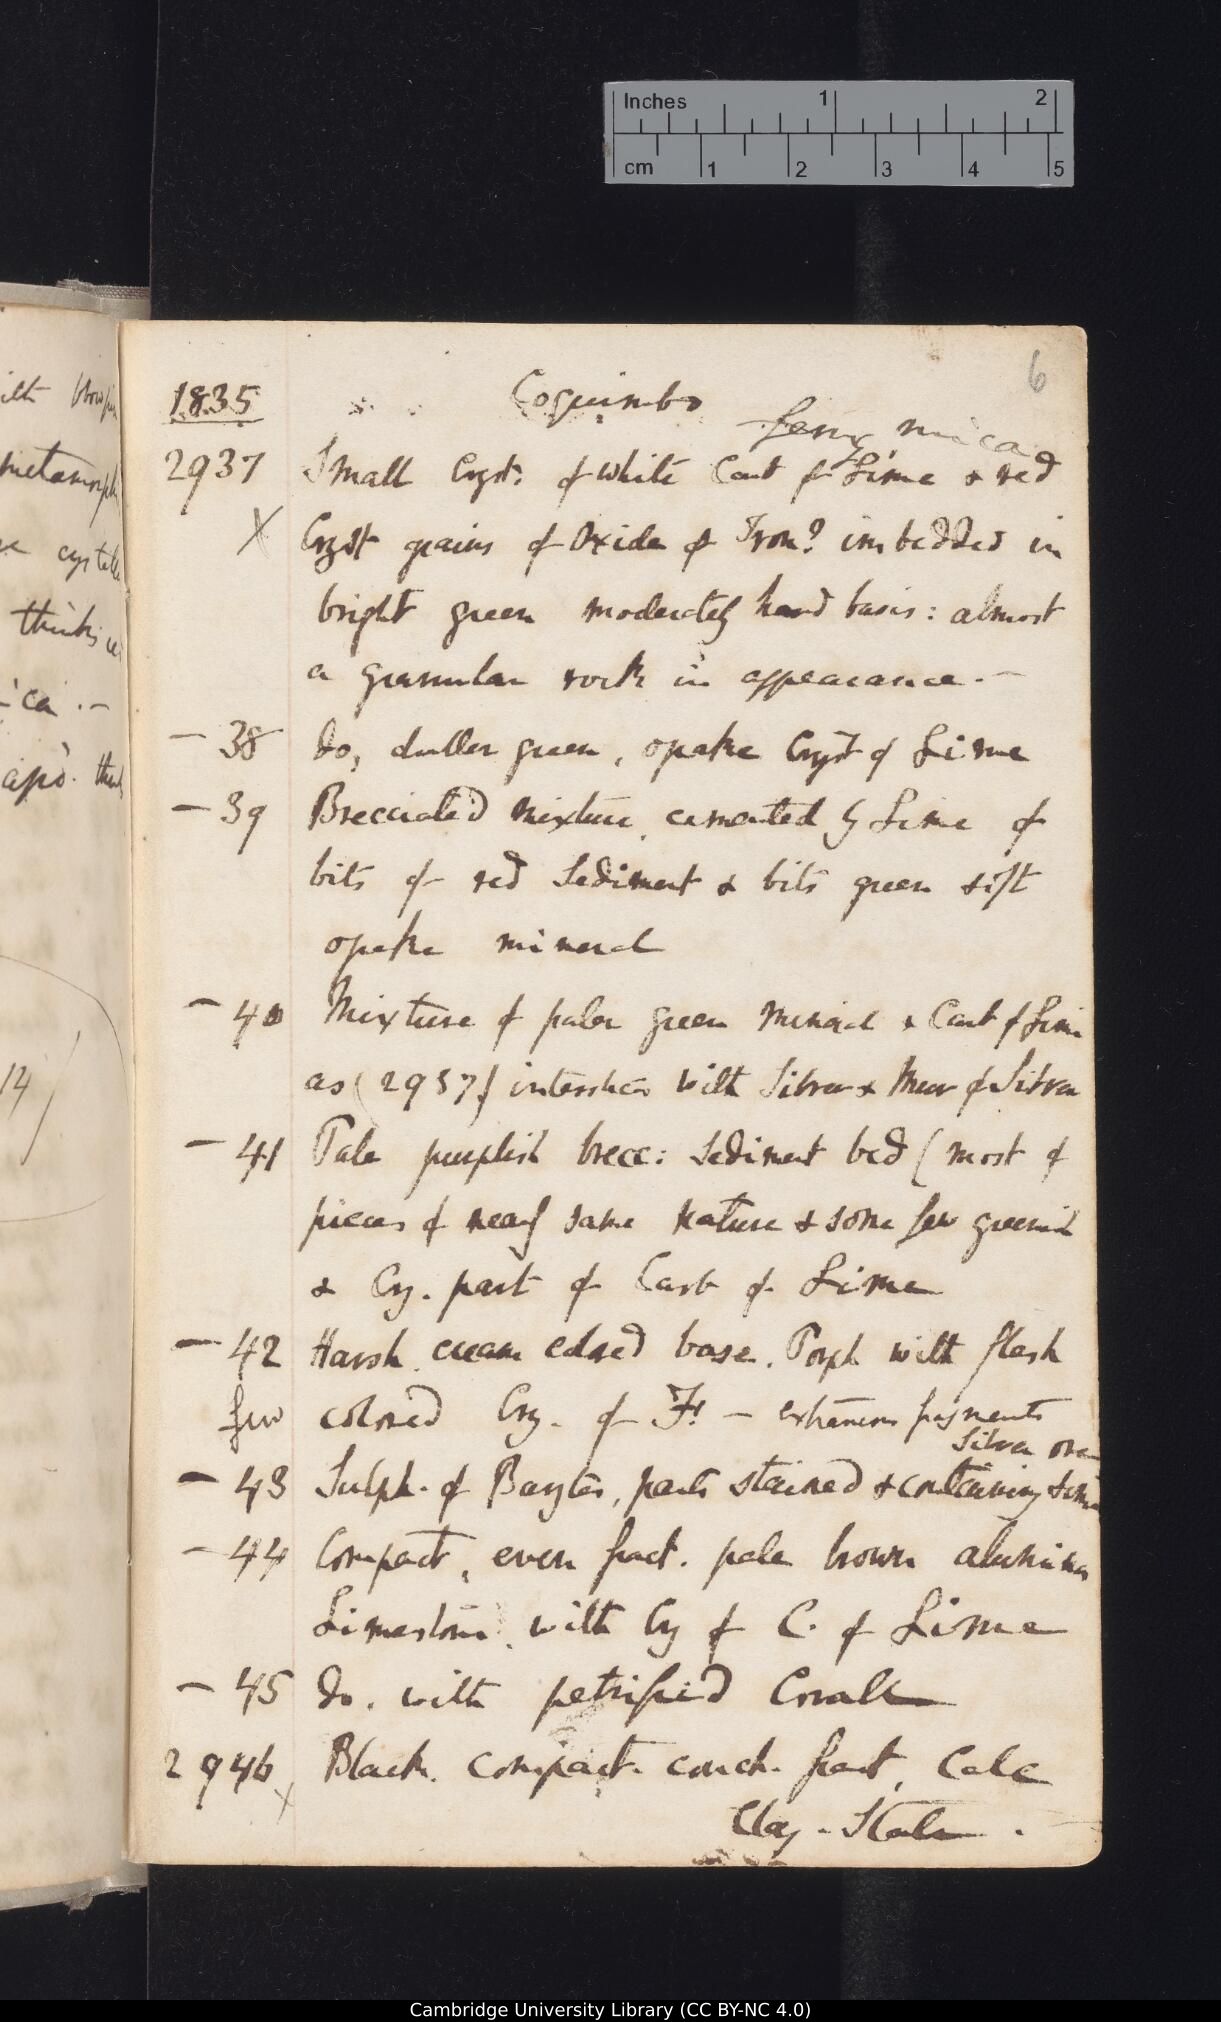 Inches 1 2
cm 1 2 3 4 5
6
1835 Coquimbo
mica
2937 Small Cryst: of white Carb of Lime & red
X Cryst grains of Oxide of Iron? imbedded in
bright green moderately hard basis: almost
a granular rock in appearance. —
— 38 Do, duller green, opake Cryst of Lime
— 39 Brecciated mixture, cemented by Lime of
bits of red Sediment & bits green soft
opake mineral
— 40 Mixture of paler green mineral & Carb of Lime
as (2937) with Silver & Mur of Silver
— 41 Pale purplish brecc: Sediment bed (most of
pieces of nearly same nature & some few greenish
& Cry. part of Carb of Lime
— 42 Harsh cream colored base. Porph with flesh
few colored Cry. of F: — extraneous fragments
Silver ore
— 43 Sulph. of Barytes, parts stained & containing some
— 44 Compact, even fract. pale brown aluminous
Limestone, with Cry of C. of Lime
— 45 Do. with petrified Corall
2946 Black. compact. conch. fract, Calc
X Clay-Slate.
with
metamorph
thinks
14
Cambridge University Library (CC BY-NC 4.0)